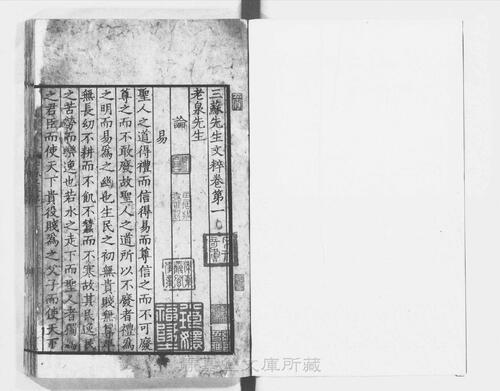 三蘇先生文粹卷第一
老泉先生
論
易
聖人之道得禮而信得易而尊信之而不可廢
尊之而不敢廢故聖人之道所以不廢者禮為
之明而易為之幽也生民之初無貴賤無
無長幼不耕而不飢不蠶而不寒故其民逸民
之苦勞而樂逸也若水之走下而聖人者獨為
之君臣而使天下貴役賤為之父子而使天下
文庫所藏